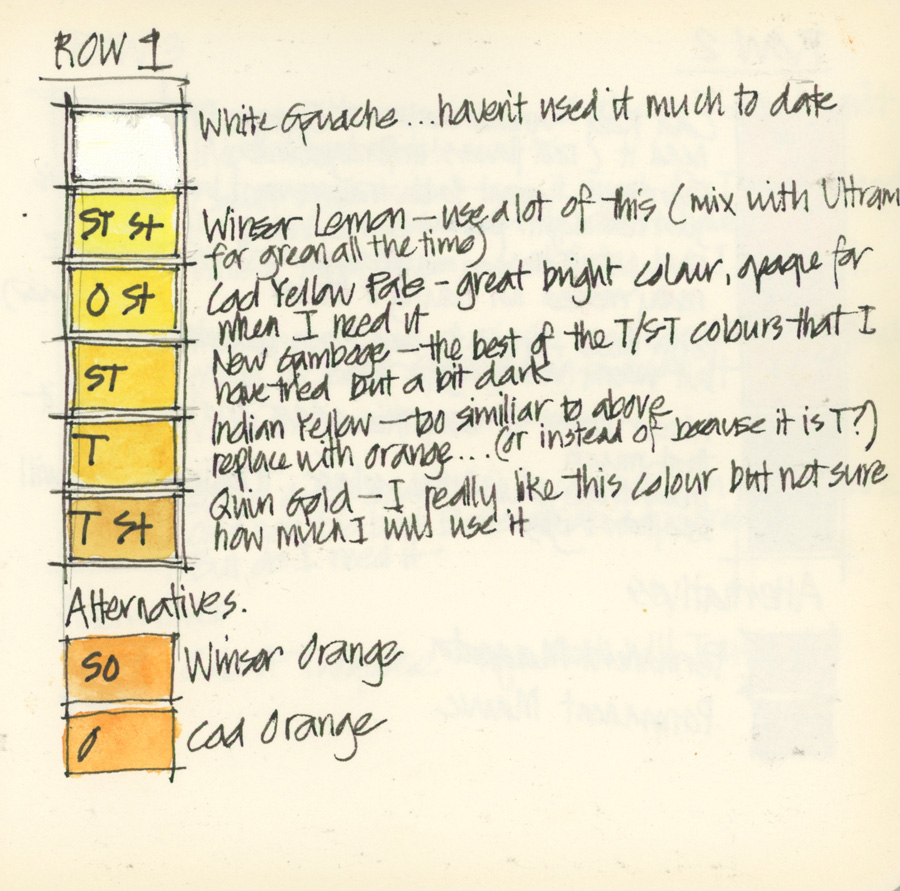 ROW 1
White Gouache...haven't used it much to date
ST St
Winsor Lemon – use a lot of this (mix with Ultram
for green all the time)
O St
Cad Yellow Pale – great bright colour, opaque for
when I need it
ST
New Gamboge – the best of the T/ST colours that I
have tried but a bit dark
T
Indian Yellow – too similiar to above
replace with orange...(or instead of because it is T?)
T St
Quin Gold – I really like this colour but not sure
how much I will use it
Alternatives.
SO
Winsor Orange
O
Cad Orange